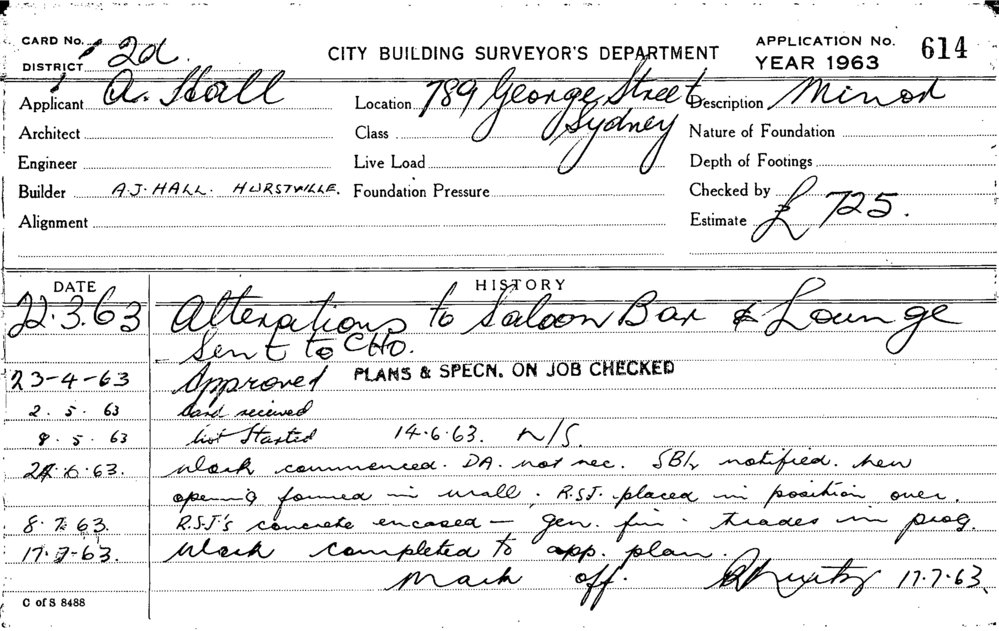 CARD No.
DISTRICT 2d.
CITY BUILDING SURVEYOR'S DEPARTMENT
APPLICATION No. 614
YEAR 1963
Applicant A. Hall
Location 789 George Street
Sydney
Description Minor
Architect
Class
Nature of Foundation
Engineer
Live Load
Depth of Footings
Builder A.J. HALL. HURSTVILLE.
Foundation Pressure
Checked by
Alignment
Estimate £725.
DATE HISTORY
22.3.63 Alterations to Saloon Bar & Lounge
Sent to CHO.
23-4-63 Approved PLANS & SPECN. ON JOB CHECKED
2.5.63 Card received
8.5.63 Not Started 14.6.63. N/S.
24.6.63. Work commenced. DA. not nec. notified. New
opening formed in wall. R.S.J. placed in position over.
8.7.63. R.S.J's concrete encased — gen. fin. trades in prog.
17.7.63. Work completed to app. plan.
Mark off. 17.7.63.
C of S 8488